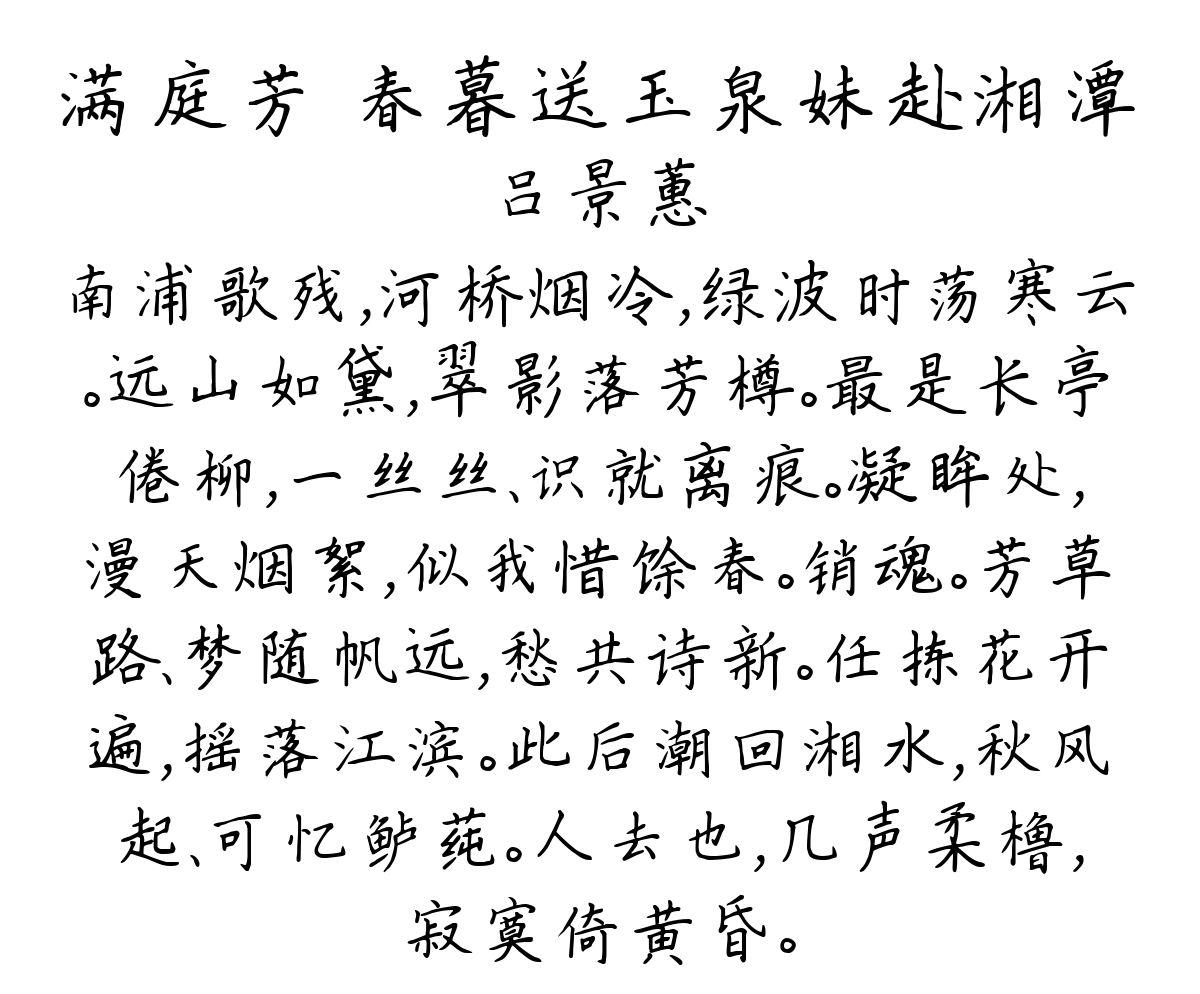 满庭芳 春暮送玉泉妹赴湘潭
吕景蕙
南浦歌残,河桥烟冷,绿波时荡寒云
。远山如黛,翠影落芳樽。最是长亭
倦柳,一丝丝、识就离痕。凝眸处,
漫天烟絮,似我惜馀春。销魂。芳草
路、梦随帆远,愁共诗新。任拣花开
遍,摇落江滨。此后潮回湘水,秋风
起、可忆鲈莼。人去也,几声柔橹,
寂寞倚黄昏。